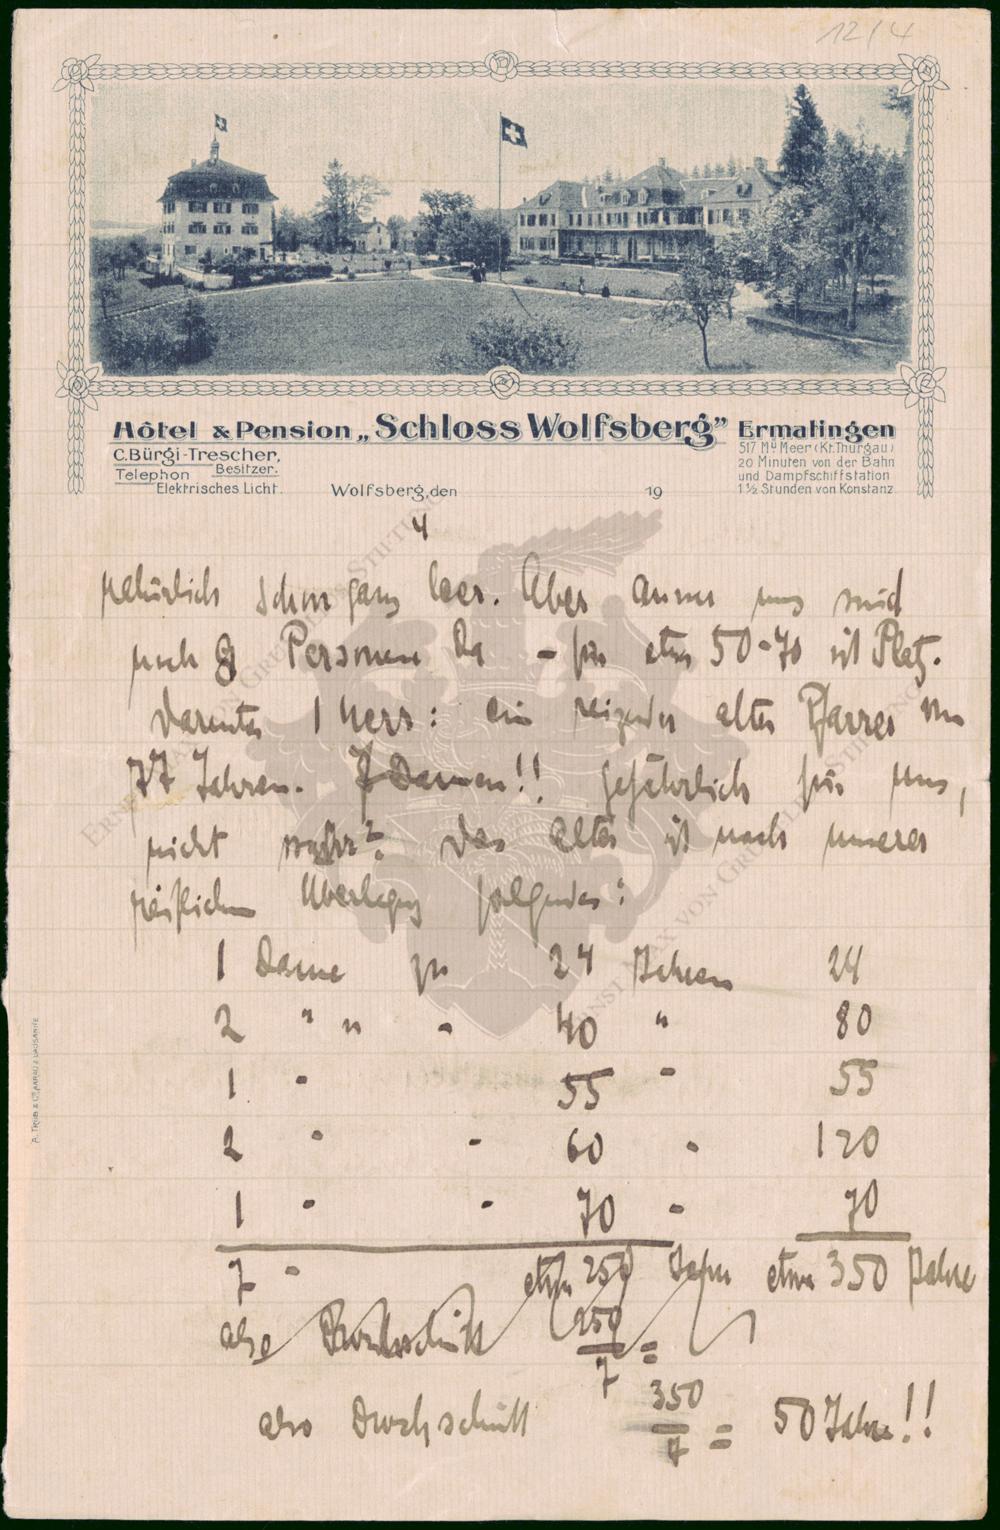 12/4
Hôtel & Pension „Schloss Wolfsberg” Ermatingen
C. Bürgi-Trescher,
Besitzer.
Telephon
Elektrisches Licht.
517 M ü Meer (Kt. Thurgau)
20 Minuten von der Bahn
und Dampfschiffstation
1½ Stunden von Konstanz
Wolfsberg, den 19
4
natürlich schon ganz leer. Aber ausser uns sind
noch 8 Personen da - für etwa 50-70 ist Platz.
Darunter 1 Herr: ein reizender alter Pfarrer von
77 Jahren. 7 Damen!! Gefährlich für uns,
nicht wahr? Das Alter ist nach unserer
reiflichen Überlegung folgendes:
1 Dame zu 24 Jahren 24
2 " " - 40 " 80
1 " 55 " 55
2 " - 60 " 120
1 " - 70 " 70
7 " etwa 250 Jahre etwa 350 Jahre
also Durchschnitt 250/7 =
also Durchschnitt 350/7 = 50 Jahre!!
A. Trüb & Cie, Aarau & Lausanne
ERNST MAX VON GRUNELIUS STIFTUNG
ERNST MAX VON GRUNELIUS STIFTUNG